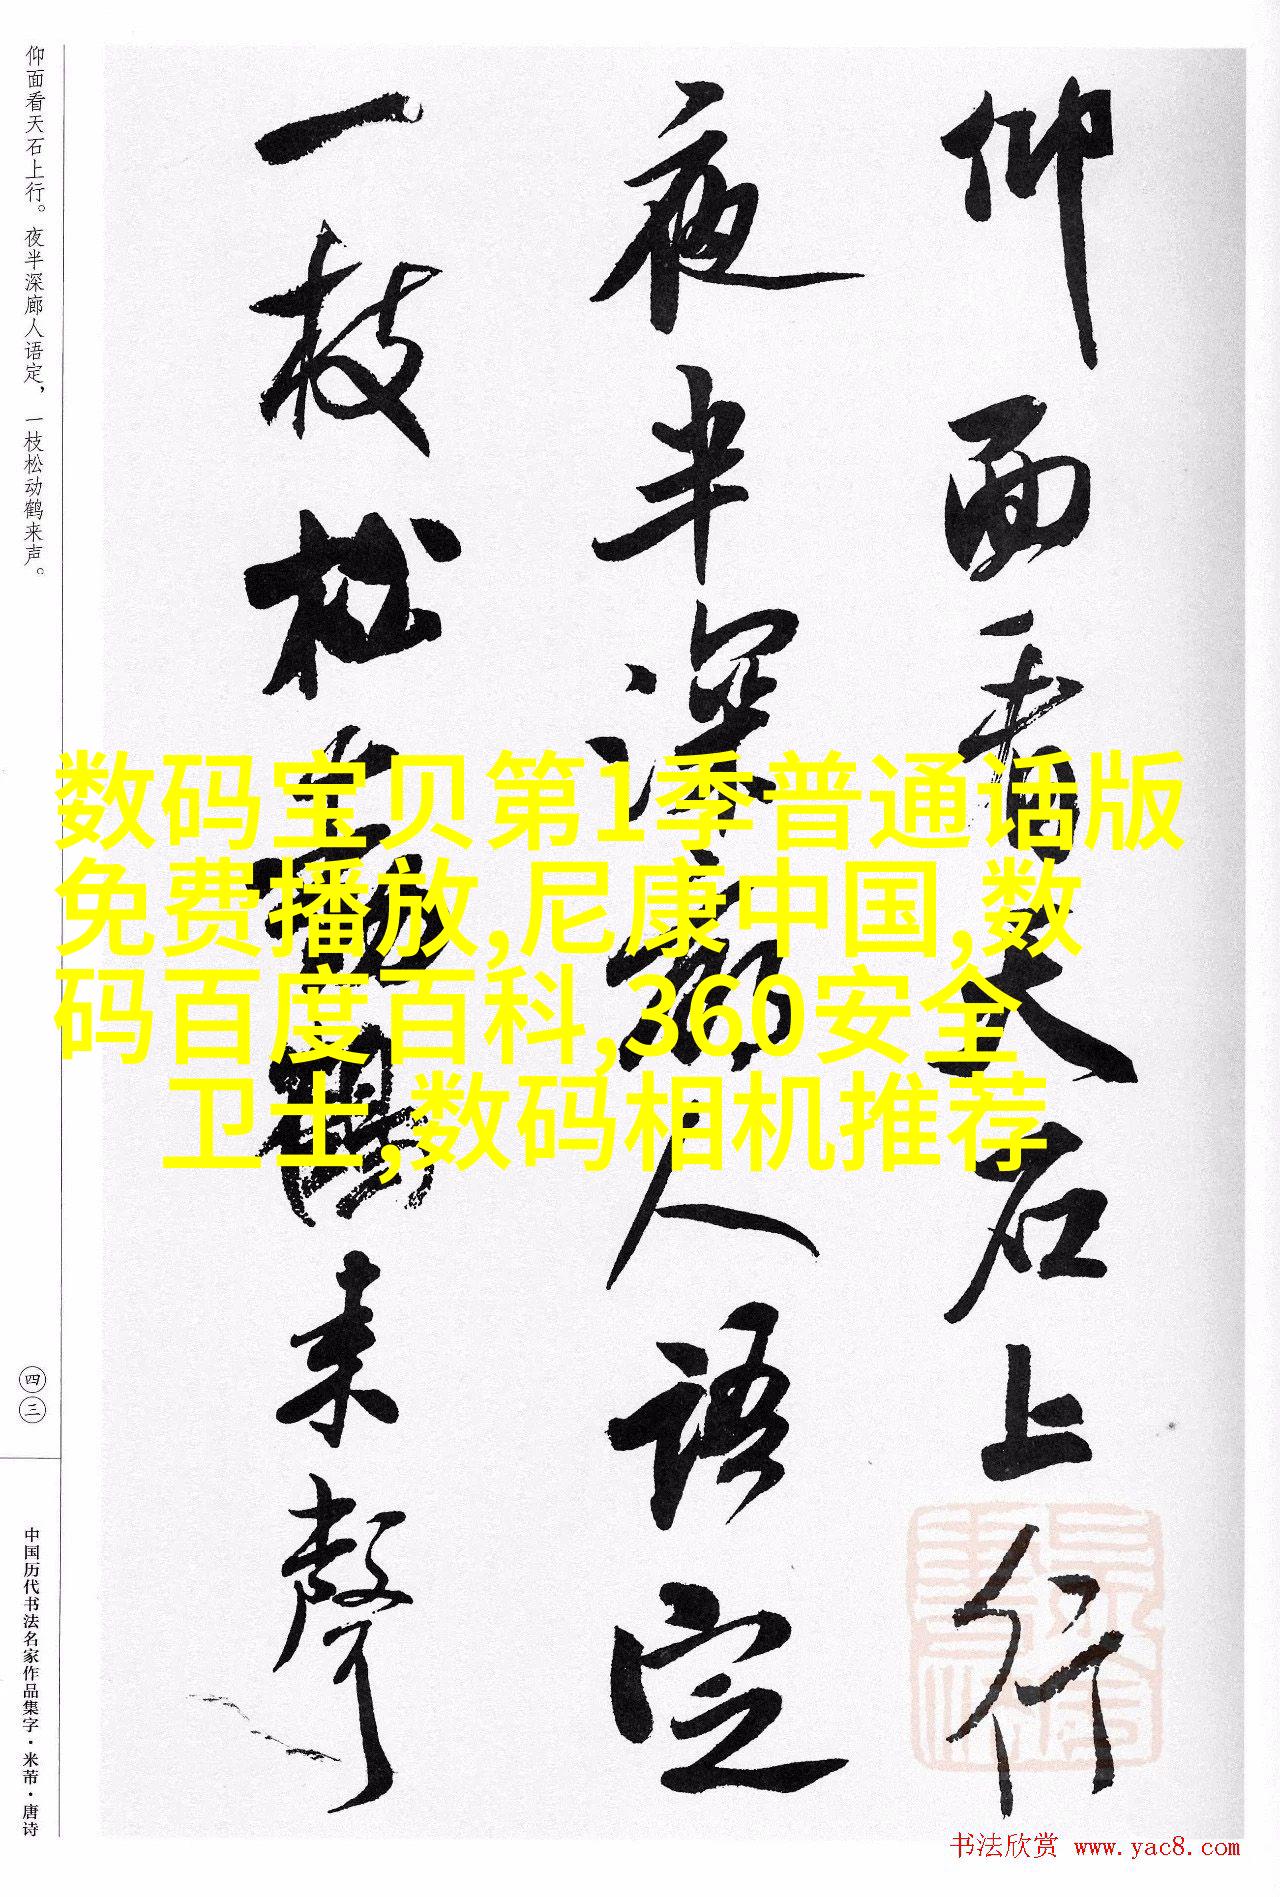 仰面看天石上行
夜半深廊人语定
一枝松動鶴来聲
仰面看天石上行。夜半深廊人语定，一枝松动鹤来声。
四三
中国历代书法名家作品集字·米芾·唐诗
数码宝贝第1季普通话版
免费播放,尼康中国,数
码百度百科,360安全
卫士,数码相机推荐
书法欣赏 www.yac8.com